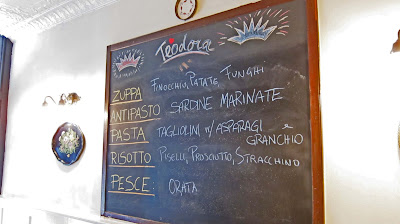 Teodora
ZUPPA FINOCCHIO, PATATE, FUNGHI
ANTIPASTO SARDINE MARINATE
PASTA TAGLIOLINI w/ ASPARAGI e
GRANCHIO
RISOTTO PISELLI, PROSCIUTTO, STRACCHINO
PESCE: ORATA